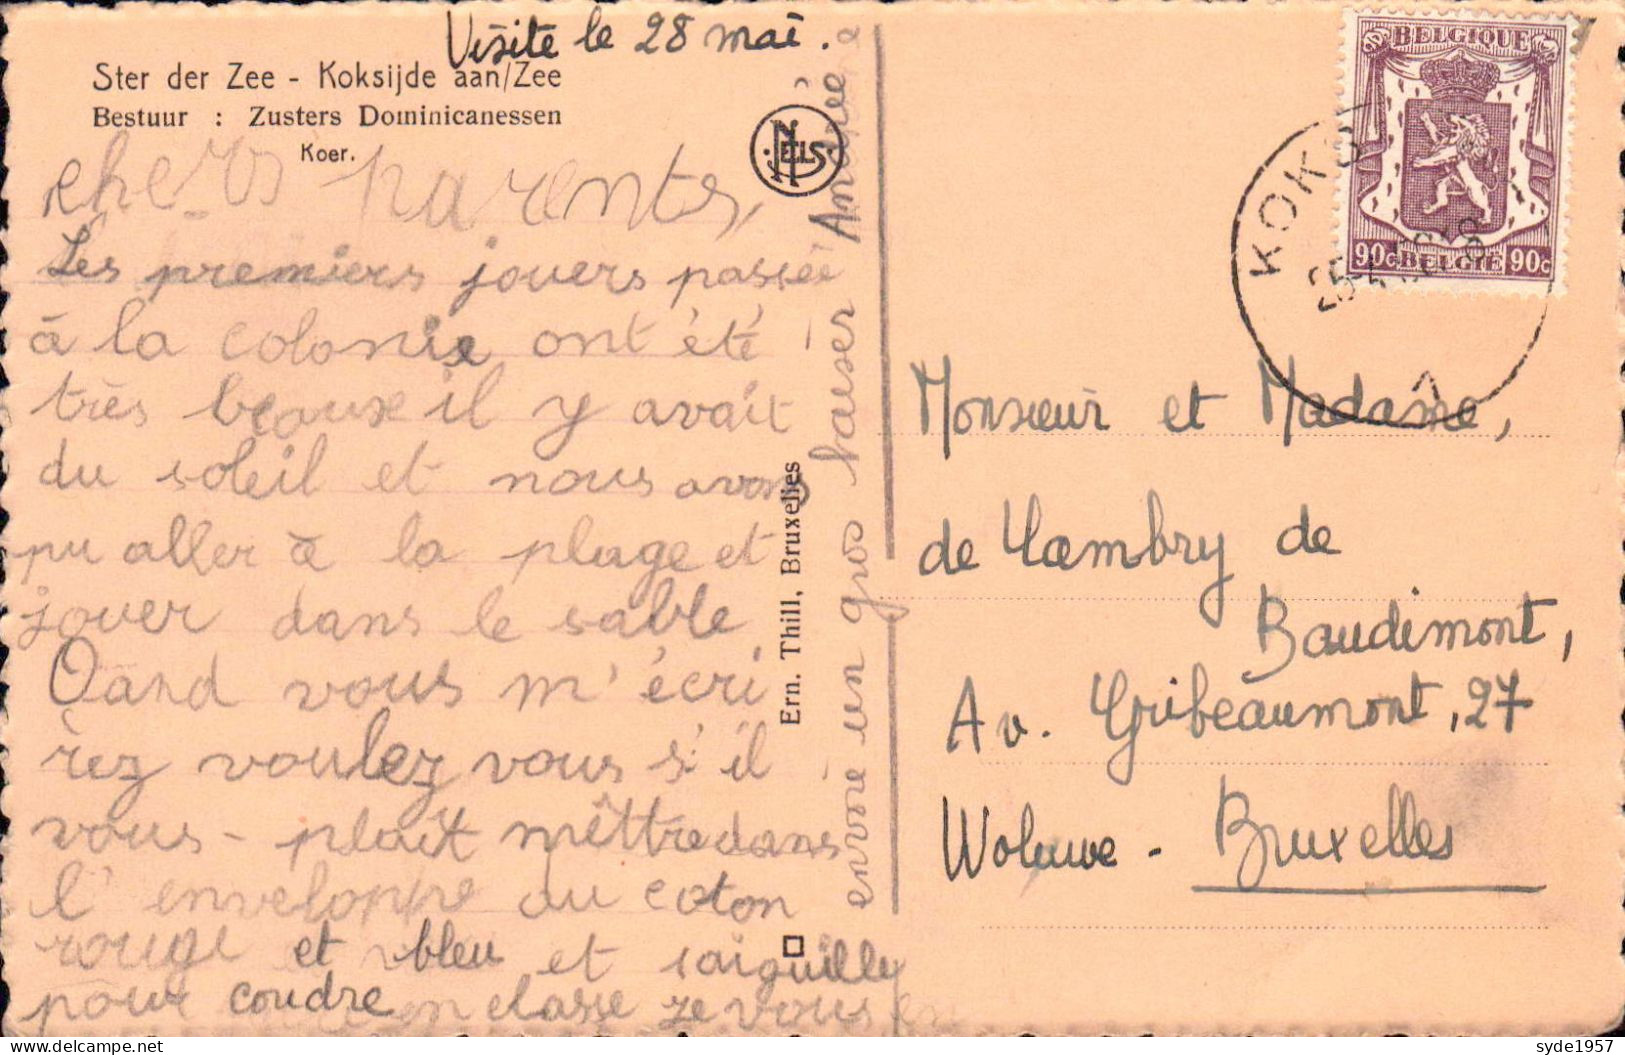 Visite le 28 mai.
Ster der Zee - Koksijde aan/Zee
Bestuur : Zusters Dominicanessen
Koer.
NELS
chers parents,
Les premiers jouers passée
à la colonie ont été
très beoux il y avait
du soleil et nous avons
pu aller à la plage et
jouer dans le sable
Qand vous m'écri
rez voulez vous s'il
vous-plaît mêttre dans
l'enveloppe du coton
rouge et bleu et 1 aiguille
pour coudre en classe je vous en
envoie un gros bauser Andrée
Ern. Thill, Bruxelles
BELGIQUE
90c BELGIE 90c
KOKS
25
1
Monsieur et Madame,
de Lambry de
Baudimont,
Av. Gribeaumont, 27
Woluwe - Bruxelles
syde1957